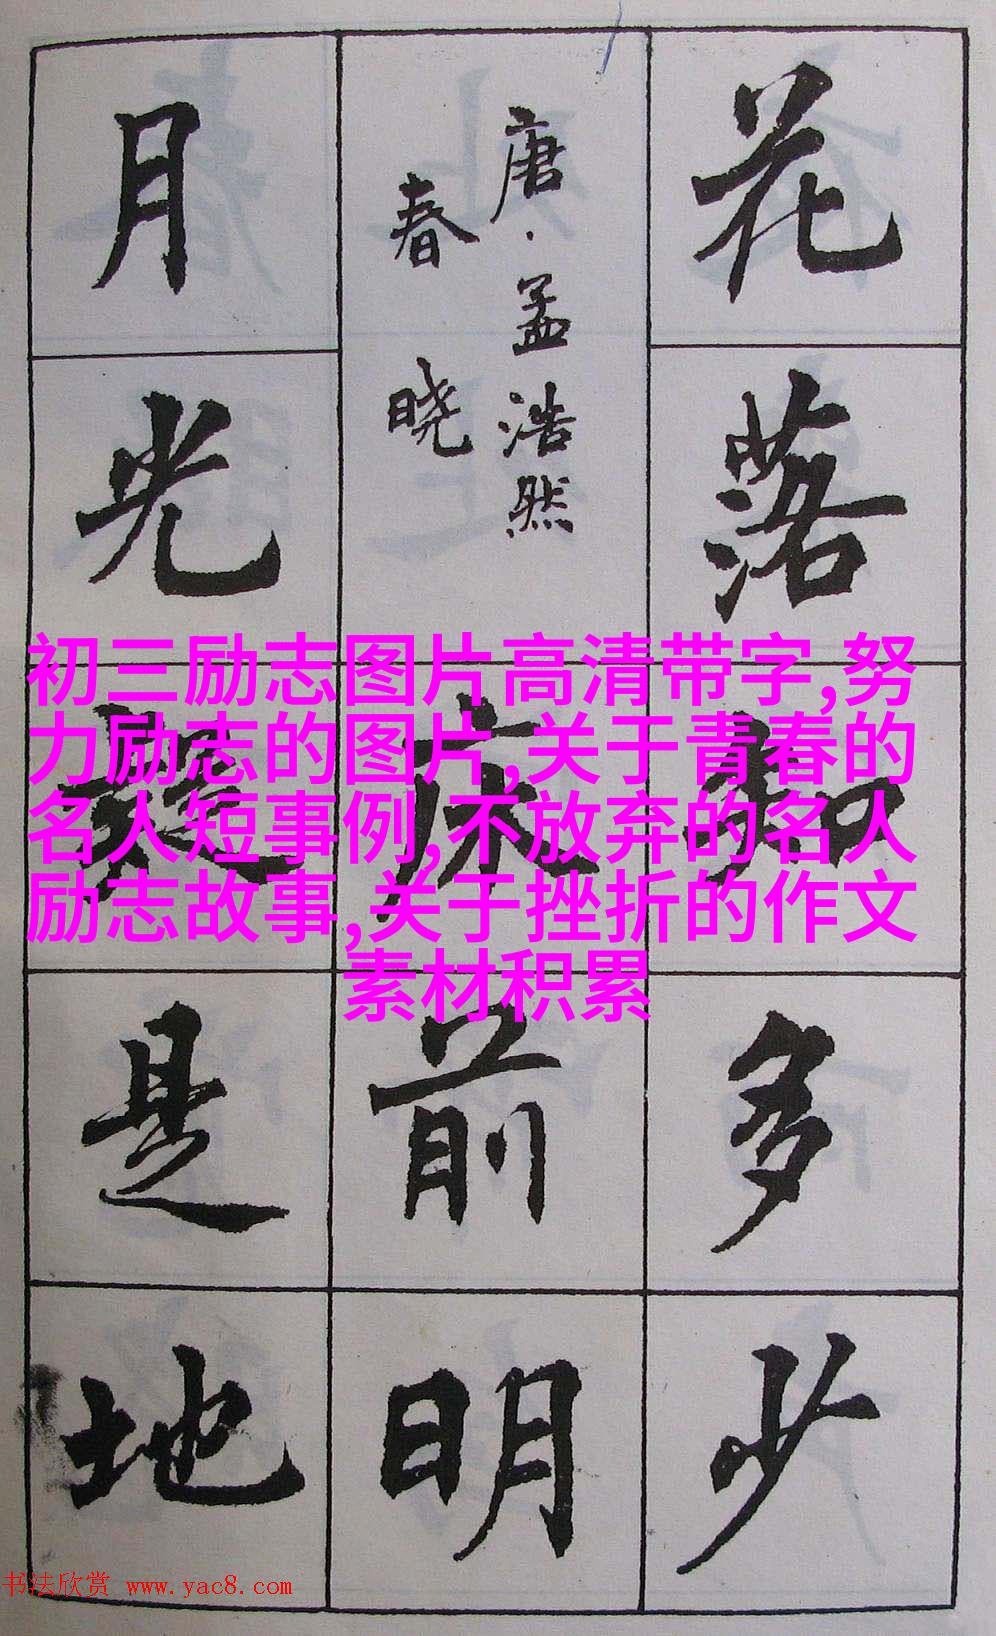 花落知多少
唐·孟浩然
春晓
床前明
月光疑是地
初三励志图片高清带字,努
力励志的图片,关于青春的
名人短事例,不放弃的名人
励志故事,关于挫折的作文
素材积累
书法欣赏 www.yac8.com